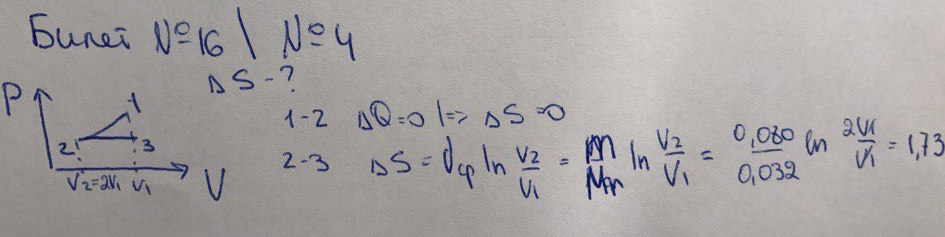 Билет №16 \ №4
ΔS - ?
P
1
2
3
V₂=2V₁ V₁
V
1-2 ΔQ=0 |=> ΔS=0
2-3 ΔS = νcp ln V₂/V₁ = m/M ln V₂/V₁ = 0,080/0,032 ln 2V₁/V₁ = 1,73